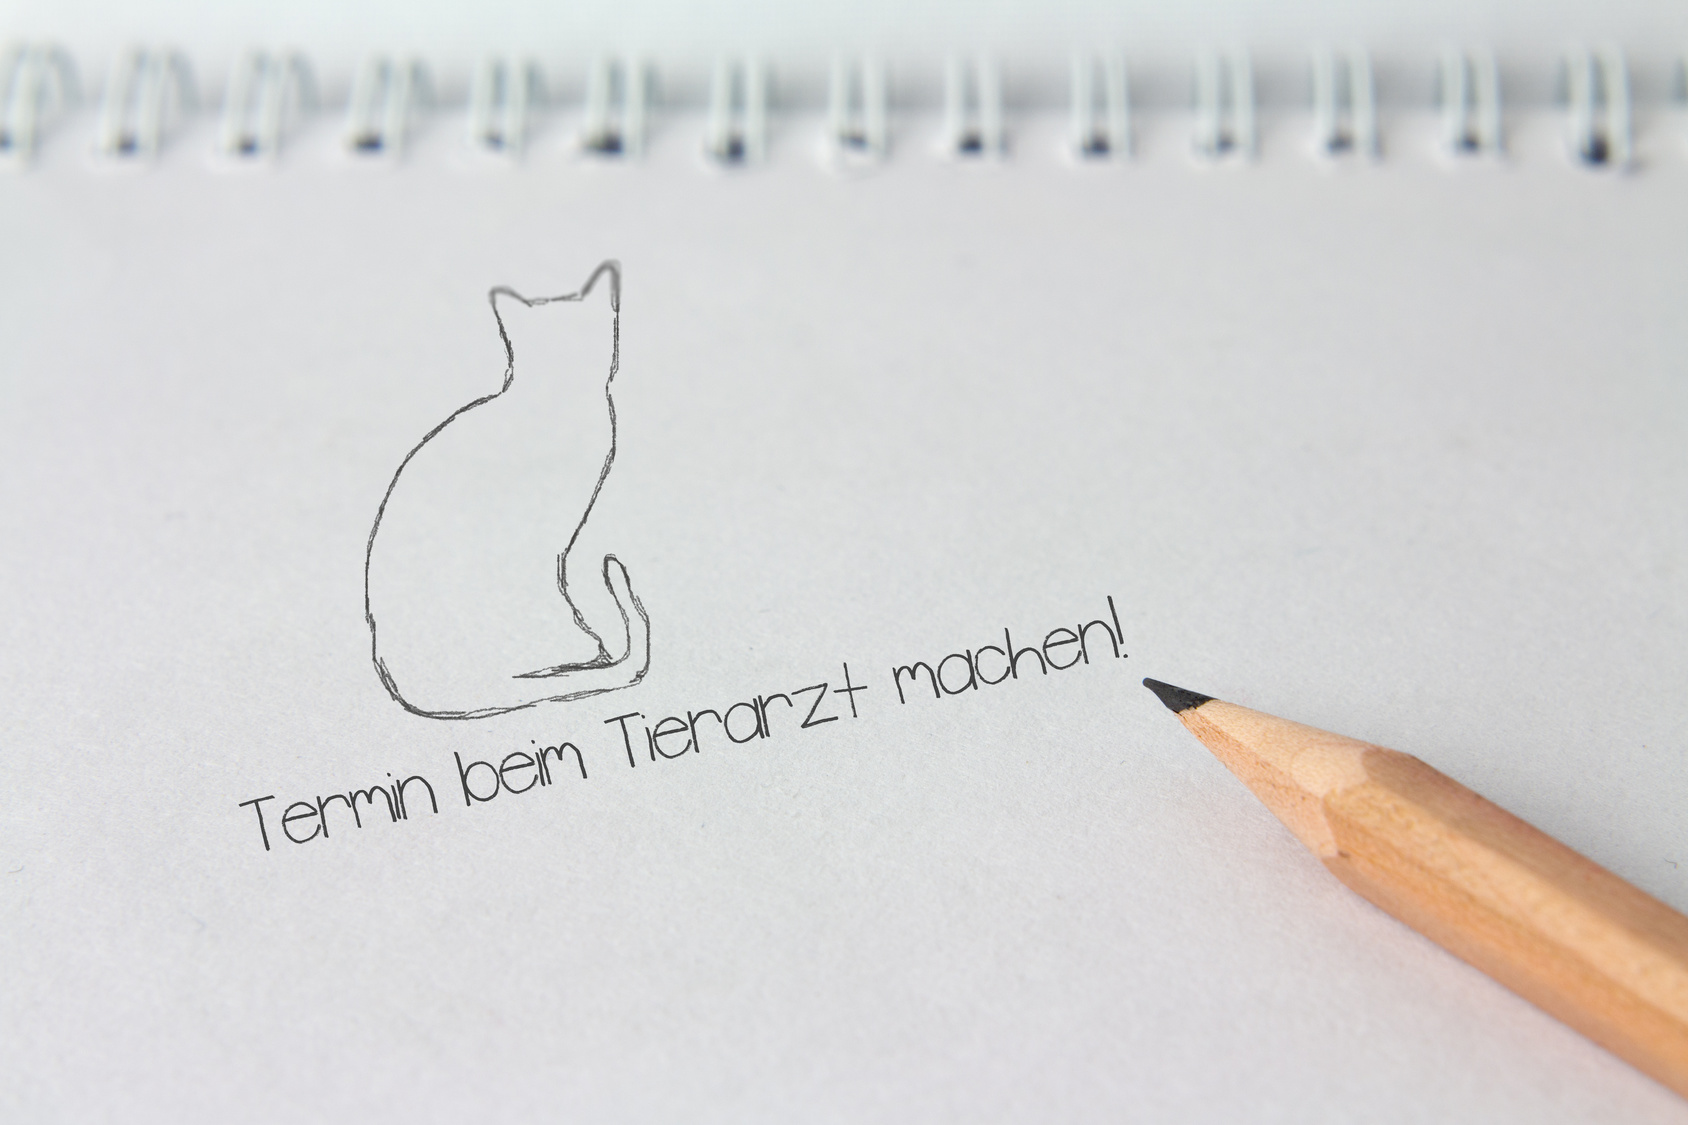 Termin beim Tierarzt machen!